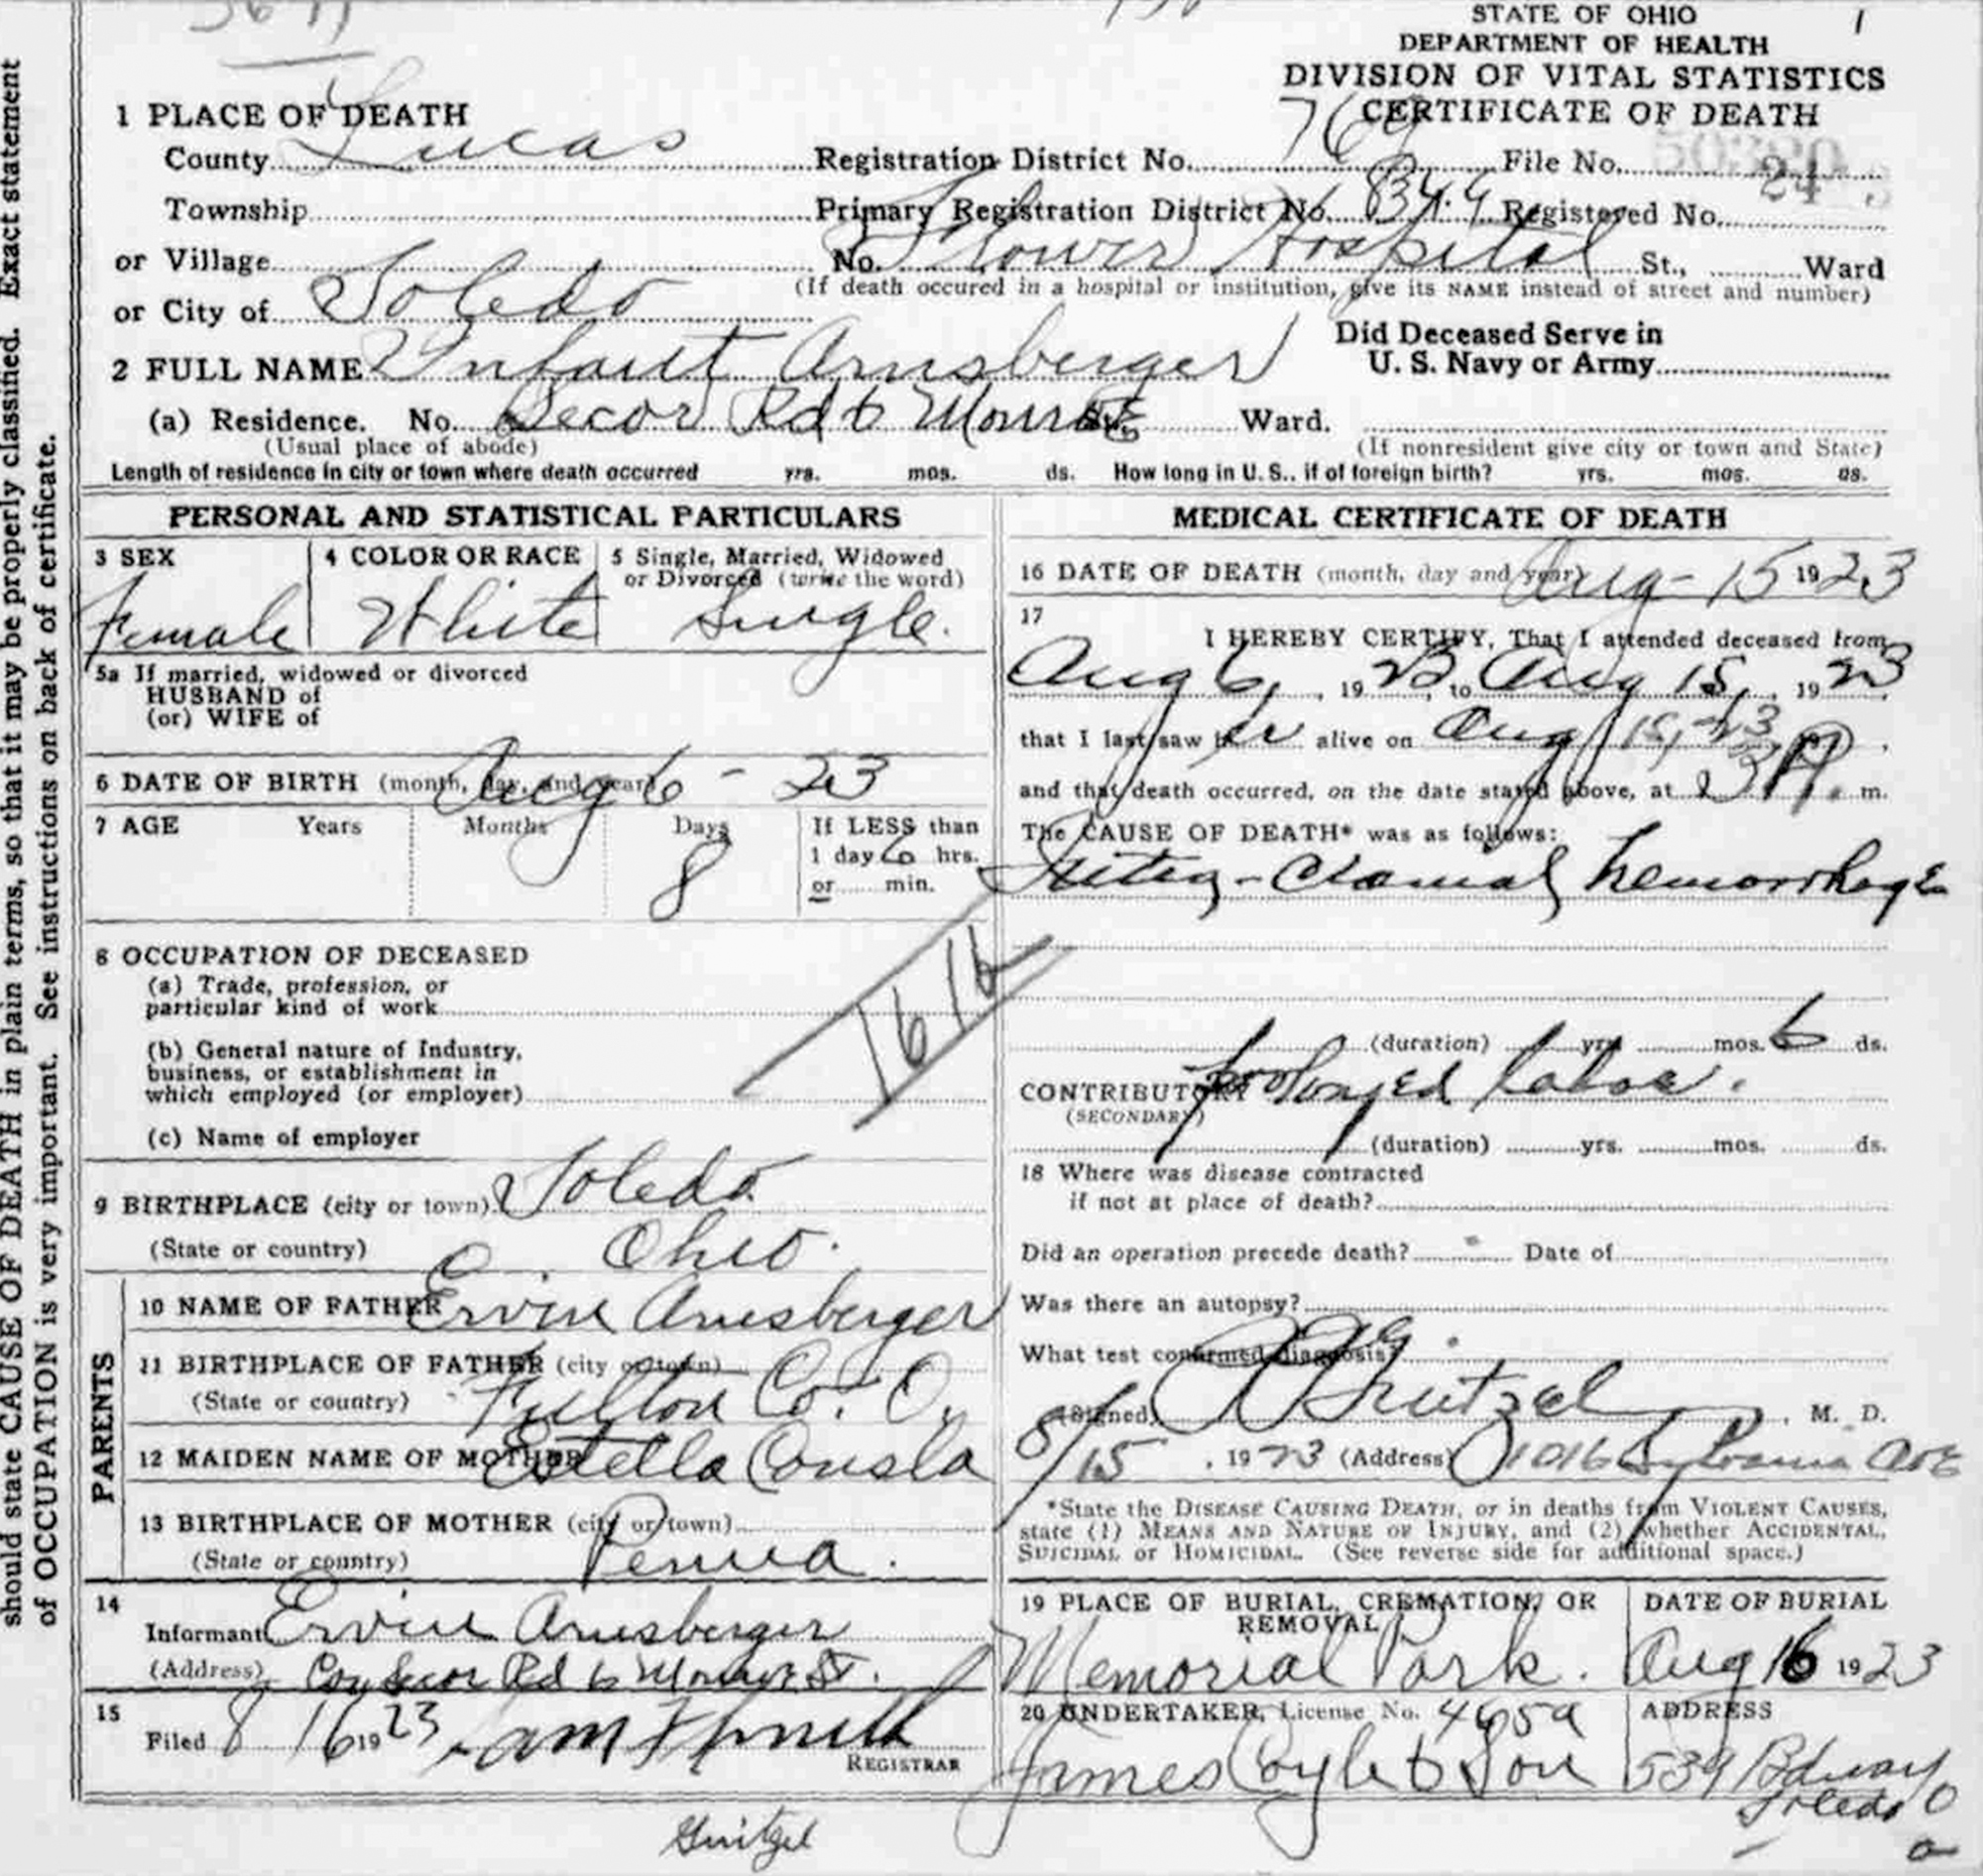 STATE OF OHIO
DEPARTMENT OF HEALTH
DIVISION OF VITAL STATISTICS
CERTIFICATE OF DEATH
1 PLACE OF DEATH
County Lucas Registration District No. 769 File No. 50380
Township Primary Registration District No. Registered No. 24
or Village No. Flower Hospital St., Ward
(If death occured in a hospital or institution, give its NAME instead of street and number)
or City of Toledo
Did Deceased Serve in
U. S. Navy or Army
2 FULL NAME Infant Arnsberger
(a) Residence. No. Secor Rd & Monroe Ward.
(Usual place of abode) (If nonresident give city or town and State)
Length of residence in city or town where death occurred yrs. mos. ds. How long in U. S., if of foreign birth? yrs. mos. ds.
PERSONAL AND STATISTICAL PARTICULARS
3 SEX 4 COLOR OR RACE 5 Single, Married, Widowed
or Divorced (write the word)
Female White Single.
5a If married, widowed or divorced
HUSBAND of
(or) WIFE of
6 DATE OF BIRTH (month, day, and year) Aug 6 - 23
7 AGE Years Months Days If LESS than
1 day 6 hrs.
8
or min.
8 OCCUPATION OF DECEASED
(a) Trade, profession, or
particular kind of work
(b) General nature of Industry,
business, or establishment in
which employed (or employer)
(c) Name of employer
1616
9 BIRTHPLACE (city or town) Toledo
(State or country) Ohio.
PARENTS
10 NAME OF FATHER Ervin Arnsberger
11 BIRTHPLACE OF FATHER (city or town)
(State or country) Fulton Co. O.
12 MAIDEN NAME OF MOTHER Estella Consla
13 BIRTHPLACE OF MOTHER (city or town)
(State or country) Penna.
14
Informant Ervin Arnsberger
(Address) Cor Secor Rd & Monroe St.
15
Filed 8 16 1923
REGISTRAR
MEDICAL CERTIFICATE OF DEATH
16 DATE OF DEATH (month, day and year) Aug - 15 1923
17
I HEREBY CERTIFY, That I attended deceased from
Aug 6, 1923, to Aug 15, 1923
that I last saw her alive on Aug 15, -23
and that death occurred, on the date stated above, at m.
The CAUSE OF DEATH* was as follows:
hemorrhage
(duration) yrs mos. 6 ds.
CONTRIBUTORY prolonged labor.
(SECONDARY)
(duration) yrs. mos. ds.
18 Where was disease contracted
if not at place of death?
Did an operation precede death? Date of
Was there an autopsy?
What test confirmed diagnosis?
(Signed) M. D.
8/15, 1923 (Address) 1016 Sylvania Ave
*State the DISEASE CAUSING DEATH, or in deaths from VIOLENT CAUSES,
state (1) MEANS AND NATURE OF INJURY, and (2) whether ACCIDENTAL,
SUICIDAL or HOMICIDAL. (See reverse side for additional space.)
19 PLACE OF BURIAL, CREMATION, OR
REMOVAL
DATE OF BURIAL
Memorial Park. Aug 16 1923
20 UNDERTAKER, License No. 465a ADDRESS
James Coyle & Son 539 Bdway
Toledo O
should state CAUSE OF DEATH in plain terms, so that it may be properly classified. Exact statement
of OCCUPATION is very important. See instructions on back of certificate.